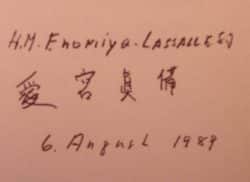 H.M. Enomiya-LASSALLE SJ
愛宮真備
6. August 1989